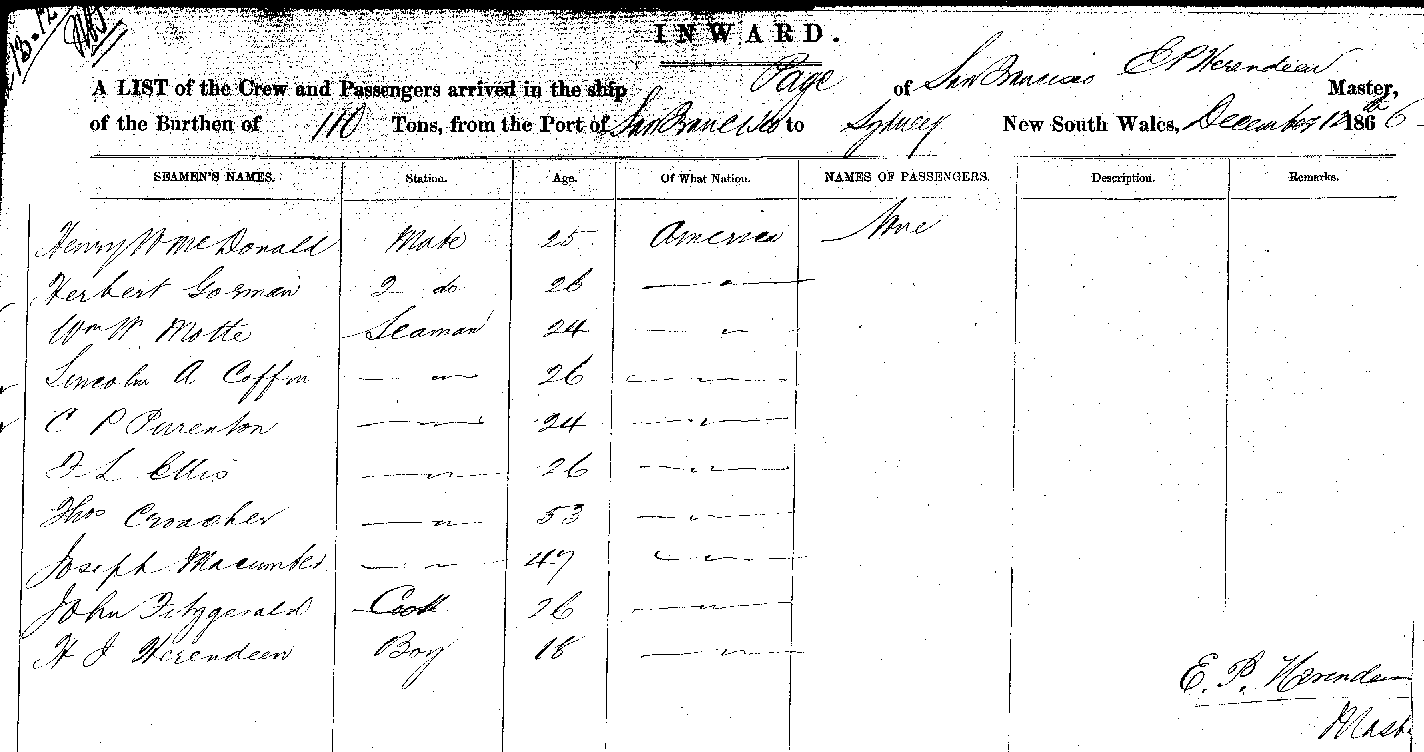 13-12
INWARD.
A LIST of the Crew and Passengers arrived in the ship Page of San Francisco E P Herendeen Master,
of the Burthen of 110 Tons, from the Port of San Francisco to Sydney New South Wales, December 12th 1866
SEAMEN'S NAMES. Station. Age. Of What Nation. NAMES OF PASSENGERS. Description. Remarks.
Henry W McDonald Mate 25 America None
Herbert Gorman 2 do 26 — " —
Wm W Motte Seaman 24 — " —
Lincoln A Coffin — " — 26 — " —
C P Purenton — " — 24 — " —
F L Ellis — " — 26 — " —
Thos Croacher — " — 53 — " —
Joseph Macumber — " — 47 — " —
John Fitzgerald Cook 26 — " —
H J Herendeen Boy 18 — " —
E. P. Herendeen
Mast